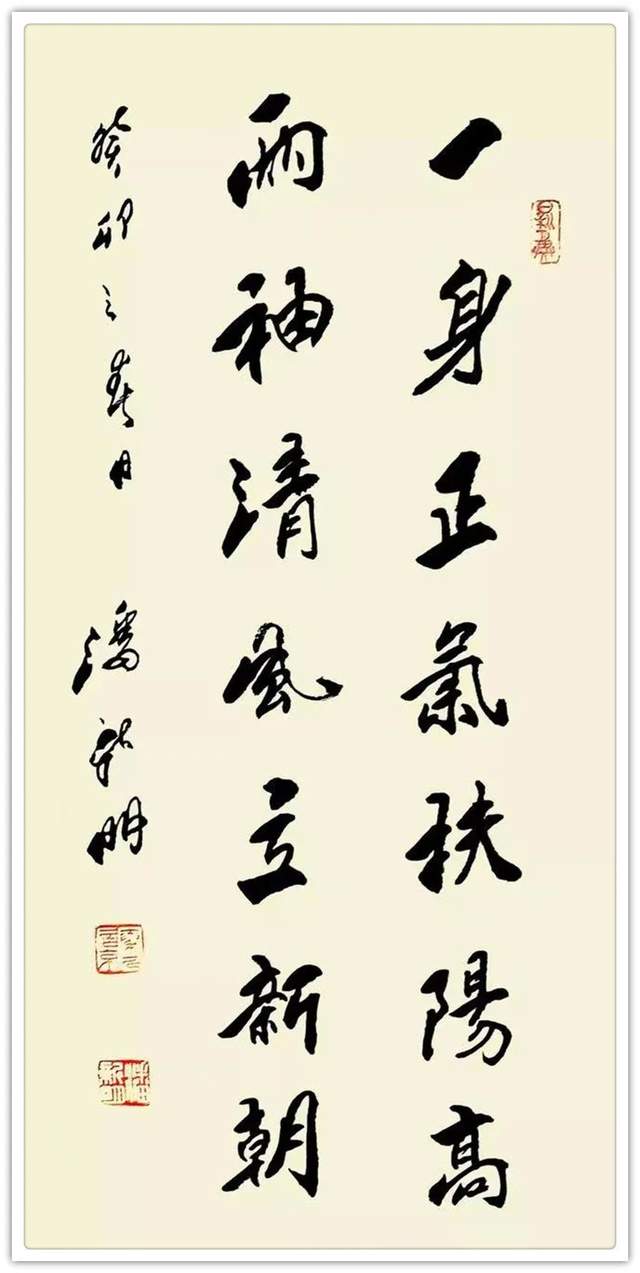 一身正氣扶陽高
兩袖清風立新朝
癸卯之春月 潘新明